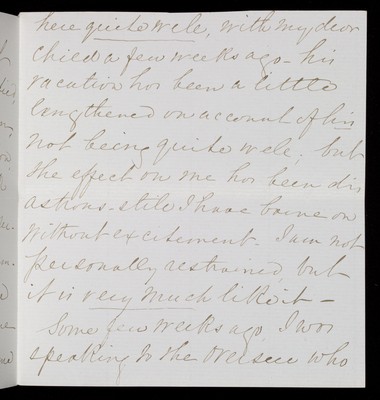 here quite well, with my dear
child a few weeks ago - his
vacation has been a little
lengthened on account of his
not being quite well, but
the effect on me has been dis
astrous. still I have borne on
without excitement - I am not
personally restrained, but
it is very much like it -
Some few weeks ago, I was
speaking to the Overseer who